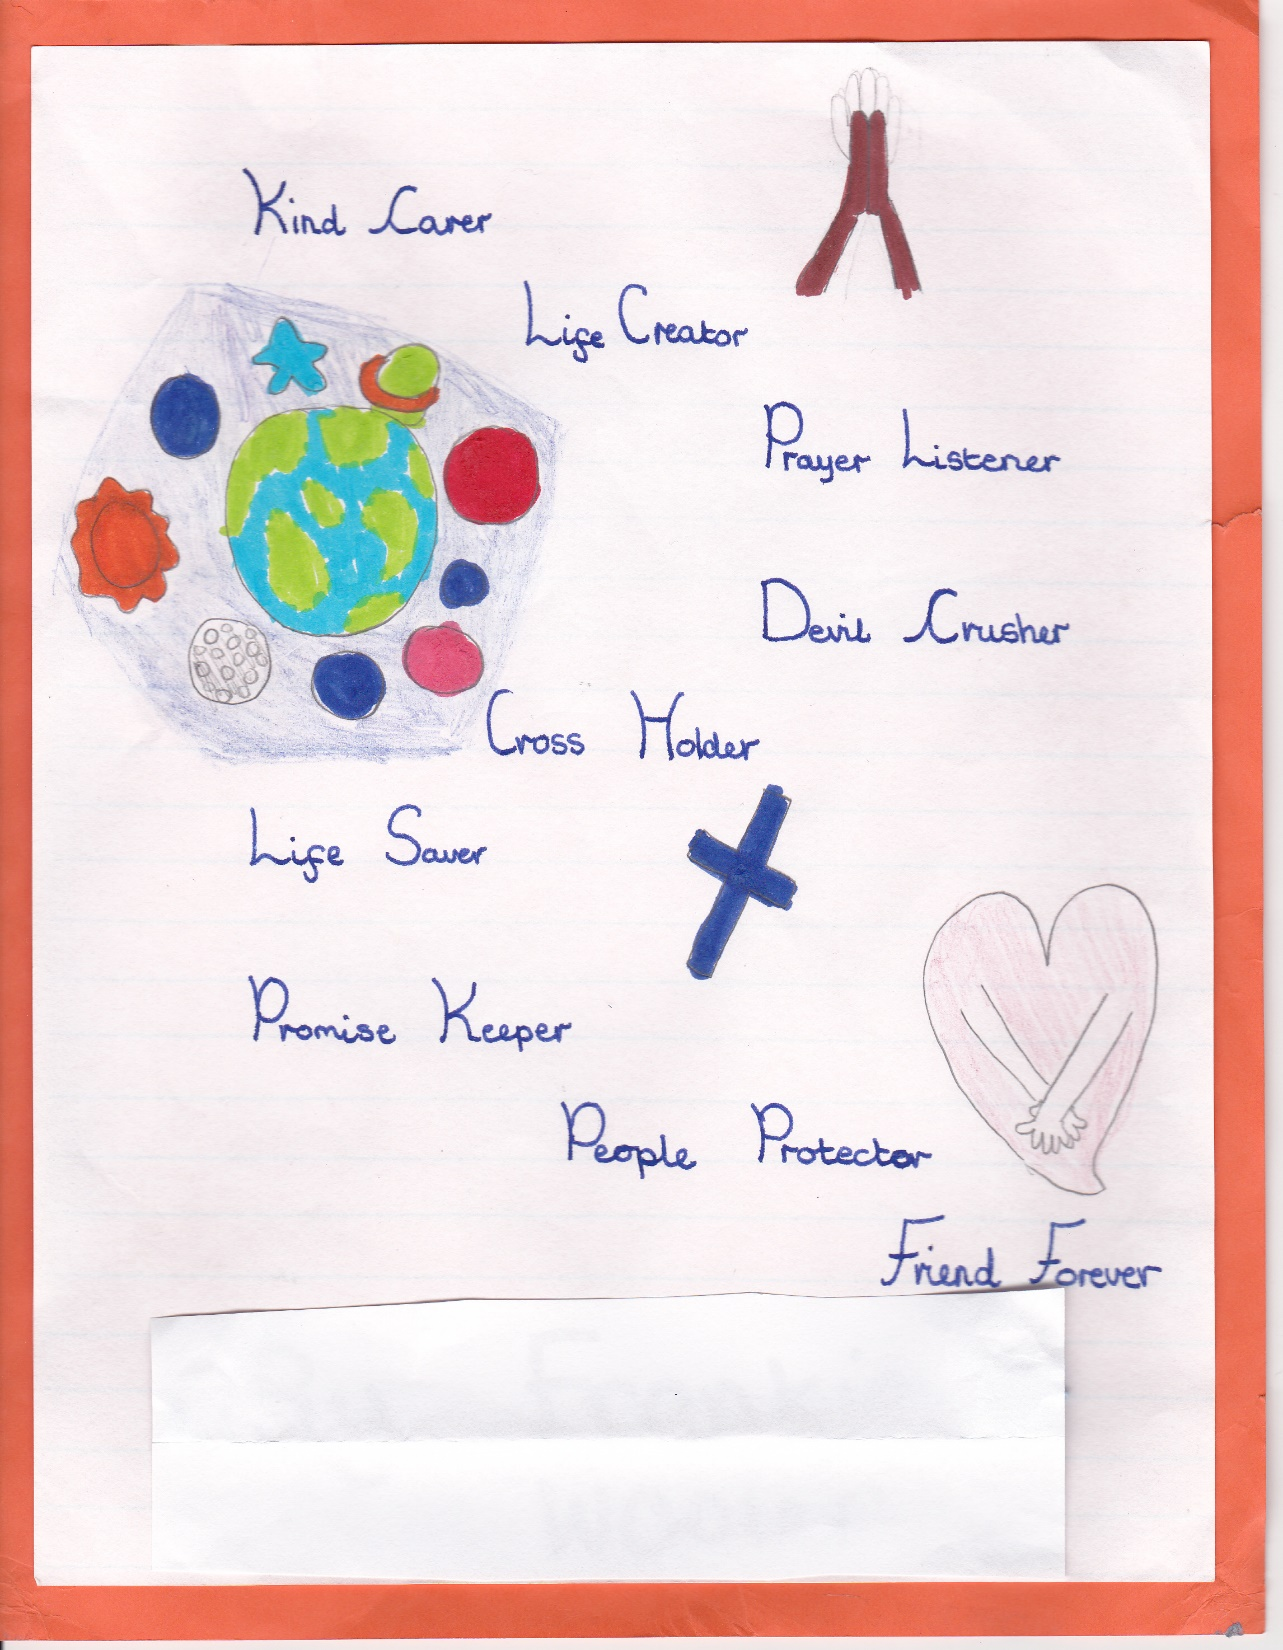 Kind Carer
Life Creator
Prayer Listener
Devil Crusher
Cross Holder
Life Saver
Promise Keeper
People Protector
Friend Forever